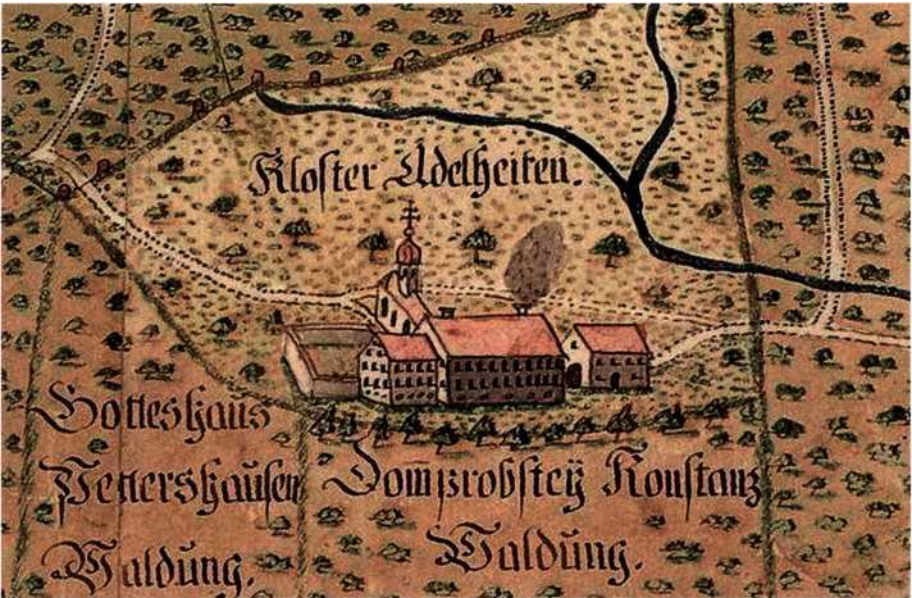 Kloster Adelheiten.
Gotteshaus
Pettershausen
Waldung.
Domprobsteÿ Konstanz
Waldung.